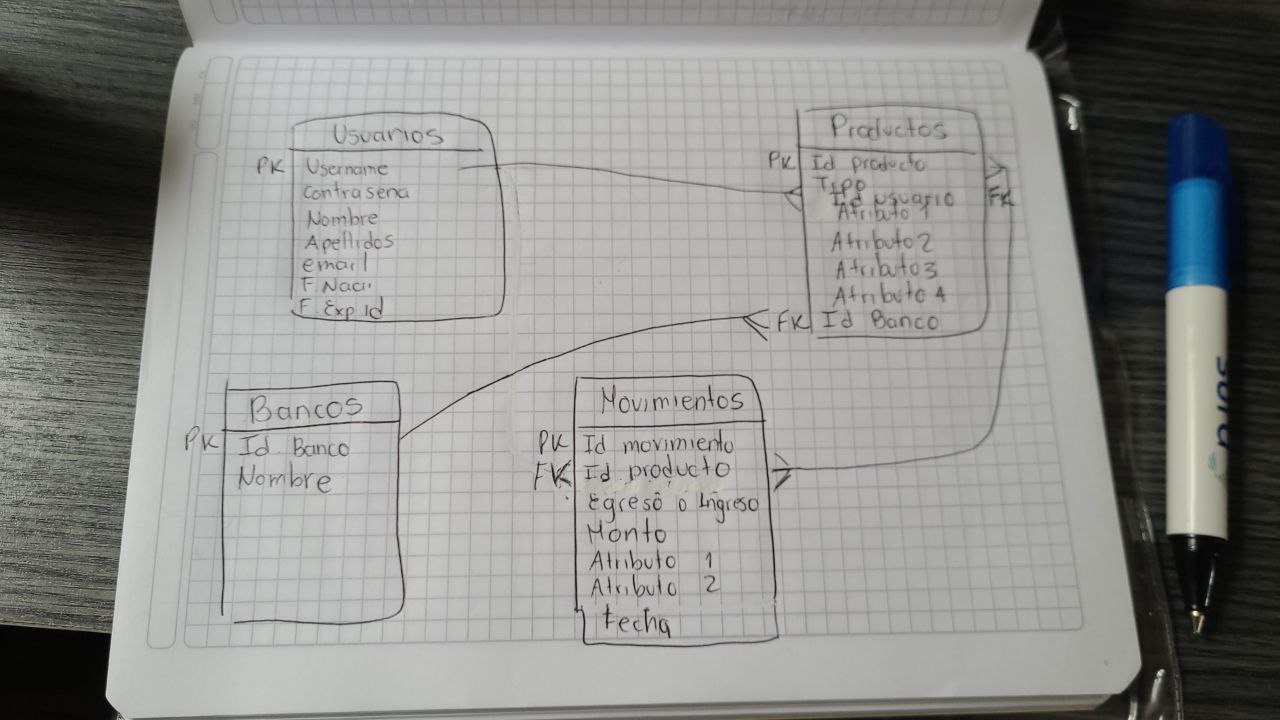 Usuarios
PK Username
Contrasena
Nombre
Apellidos
email
F. Naci.
F. Exp id
Productos
PK Id producto
Tipo
Id usuario FK
Atributo 1
Atributo 2
Atributo 3
Atributo 4
FK Id Banco
Bancos
PK Id Banco
Nombre
Movimientos
PK Id movimiento
FK Id producto
Egreso o Ingreso
Monto
Atributo 1
Atributo 2
Fecha